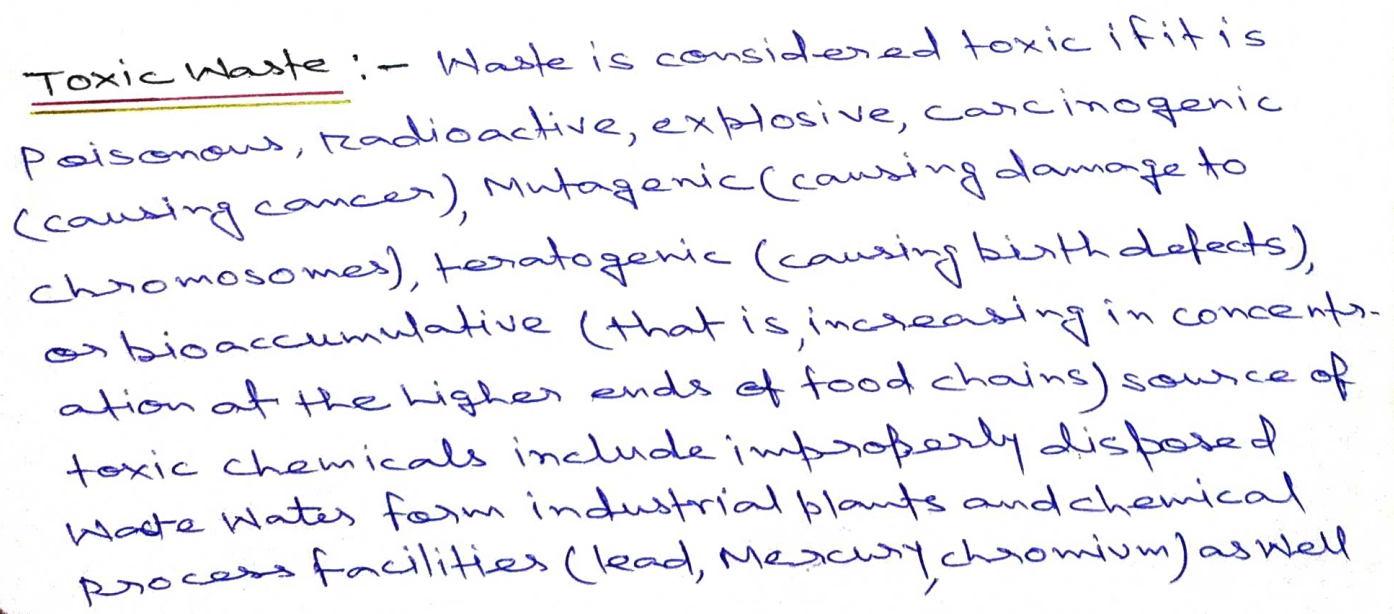 Toxic Waste :- Waste is considered toxic if it is
Poisonous, radioactive, explosive, carcinogenic
(causing cancer), Mutagenic (causing damage to
chromosomes), teratogenic (causing birth defects),
or bioaccumulative (that is, increasing in concentr-
ation at the higher ends of food chains) source of
toxic chemicals include improperly disposed
Waste Water form industrial plants and chemical
process facilities (lead, Mercury, chromium) as well